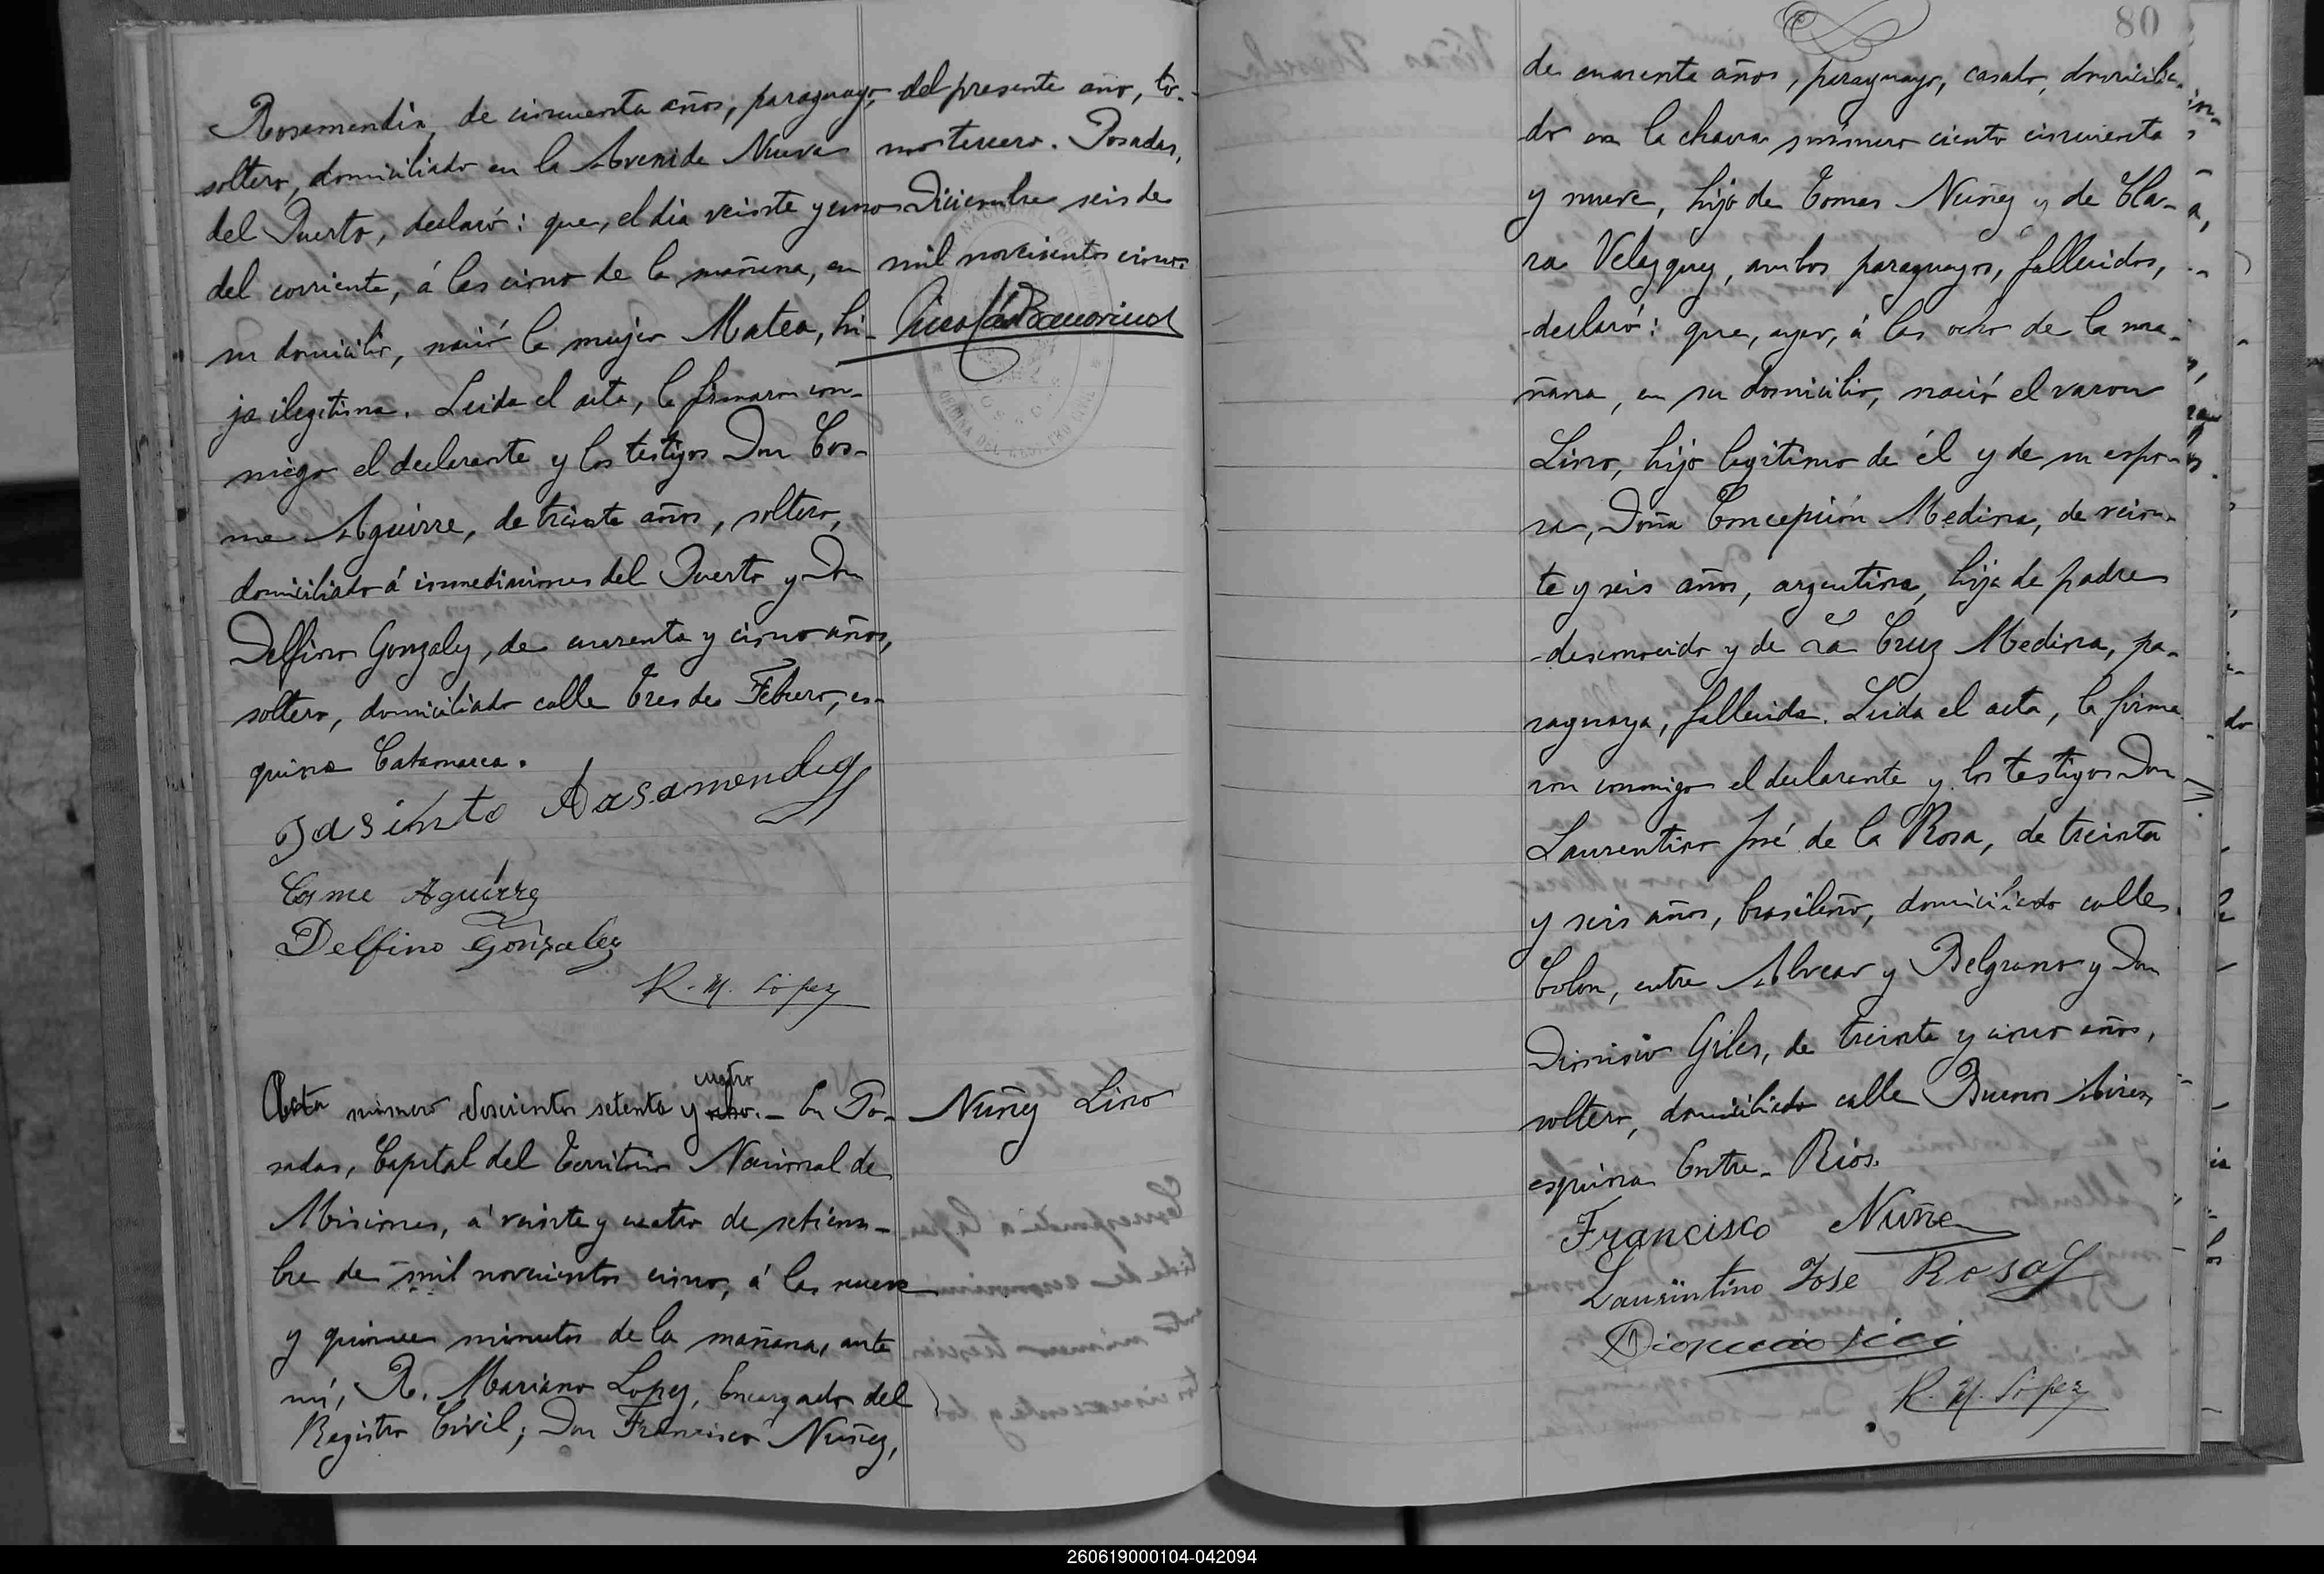 Rosamendia, de cincuenta años, paraguayo,
soltero, domiciliado en la Avenida Nueva
del Puerto, declaró: que, el dia veinte y uno
del corriente, á las cinco de la mañana, en
su domicilio, nació la mujer Matea, hi-
ja ilegitima. Leida el acta, la firmaron con-
migo el declarante y los testigos Don Cos-
me Aguirre, de treinta años, soltero,
domiciliado á inmediaciones del Puerto y Don
Delfino Gonzalez, de cuarenta y cinco años,
soltero, domiciliado calle Tres de Febrero, es-
quina Catamarca.
Jasinto Rasamendez
Cosme Aguirre
Delfino Gonzalez
R. M. Lopez
del presente año, to-
mo tercero. Posadas,
Diciembre seis de
mil novecientos cinco.
Acta número doscientos setenta y cuatro. - En Po-
sadas, Capital del Territorio Nacional de
Misiones, á veinte y cuatro de setiem-
bre de mil novecientos cinco, á las nueve
y quince minutos de la mañana, ante
mí, R. Mariano Lopez, Encargado del
Registro Civil; Don Francisco Nuñez,
Nuñez Lino
80
de cuarenta años, paraguayo, casado, domicilia-
do en la chacra número ciento cincuenta
y nueve, hijo de Tomas Nuñez y de Cla-
ra Velazquez, ambos paraguayos, fallecidos,
declaró: que, ayer, á las ocho de la ma-
ñana, en su domicilio, nació el varon
Lino, hijo legitimo de él y de su espo-
sa, Doña Concepción Medina, de vein-
te y seis años, argentina, hija de padre
desconocido y de La Cruz Medina, pa-
raguaya, fallecida. Leida el acta, la firma-
ron conmigo el declarante y los testigos Don
Laurentino José de la Rosa, de treinta
y seis años, brasileño, domiciliado calle
Colon, entre Alvear y Belgrano y Don
Dionisio Giles, de treinta y cinco años,
soltero, domiciliado calle Buenos Aires,
esquina Entre-Rios.
Francisco Nuñe
Laurintino Jose Rosa
R. M. Lopez
260619000104-042094